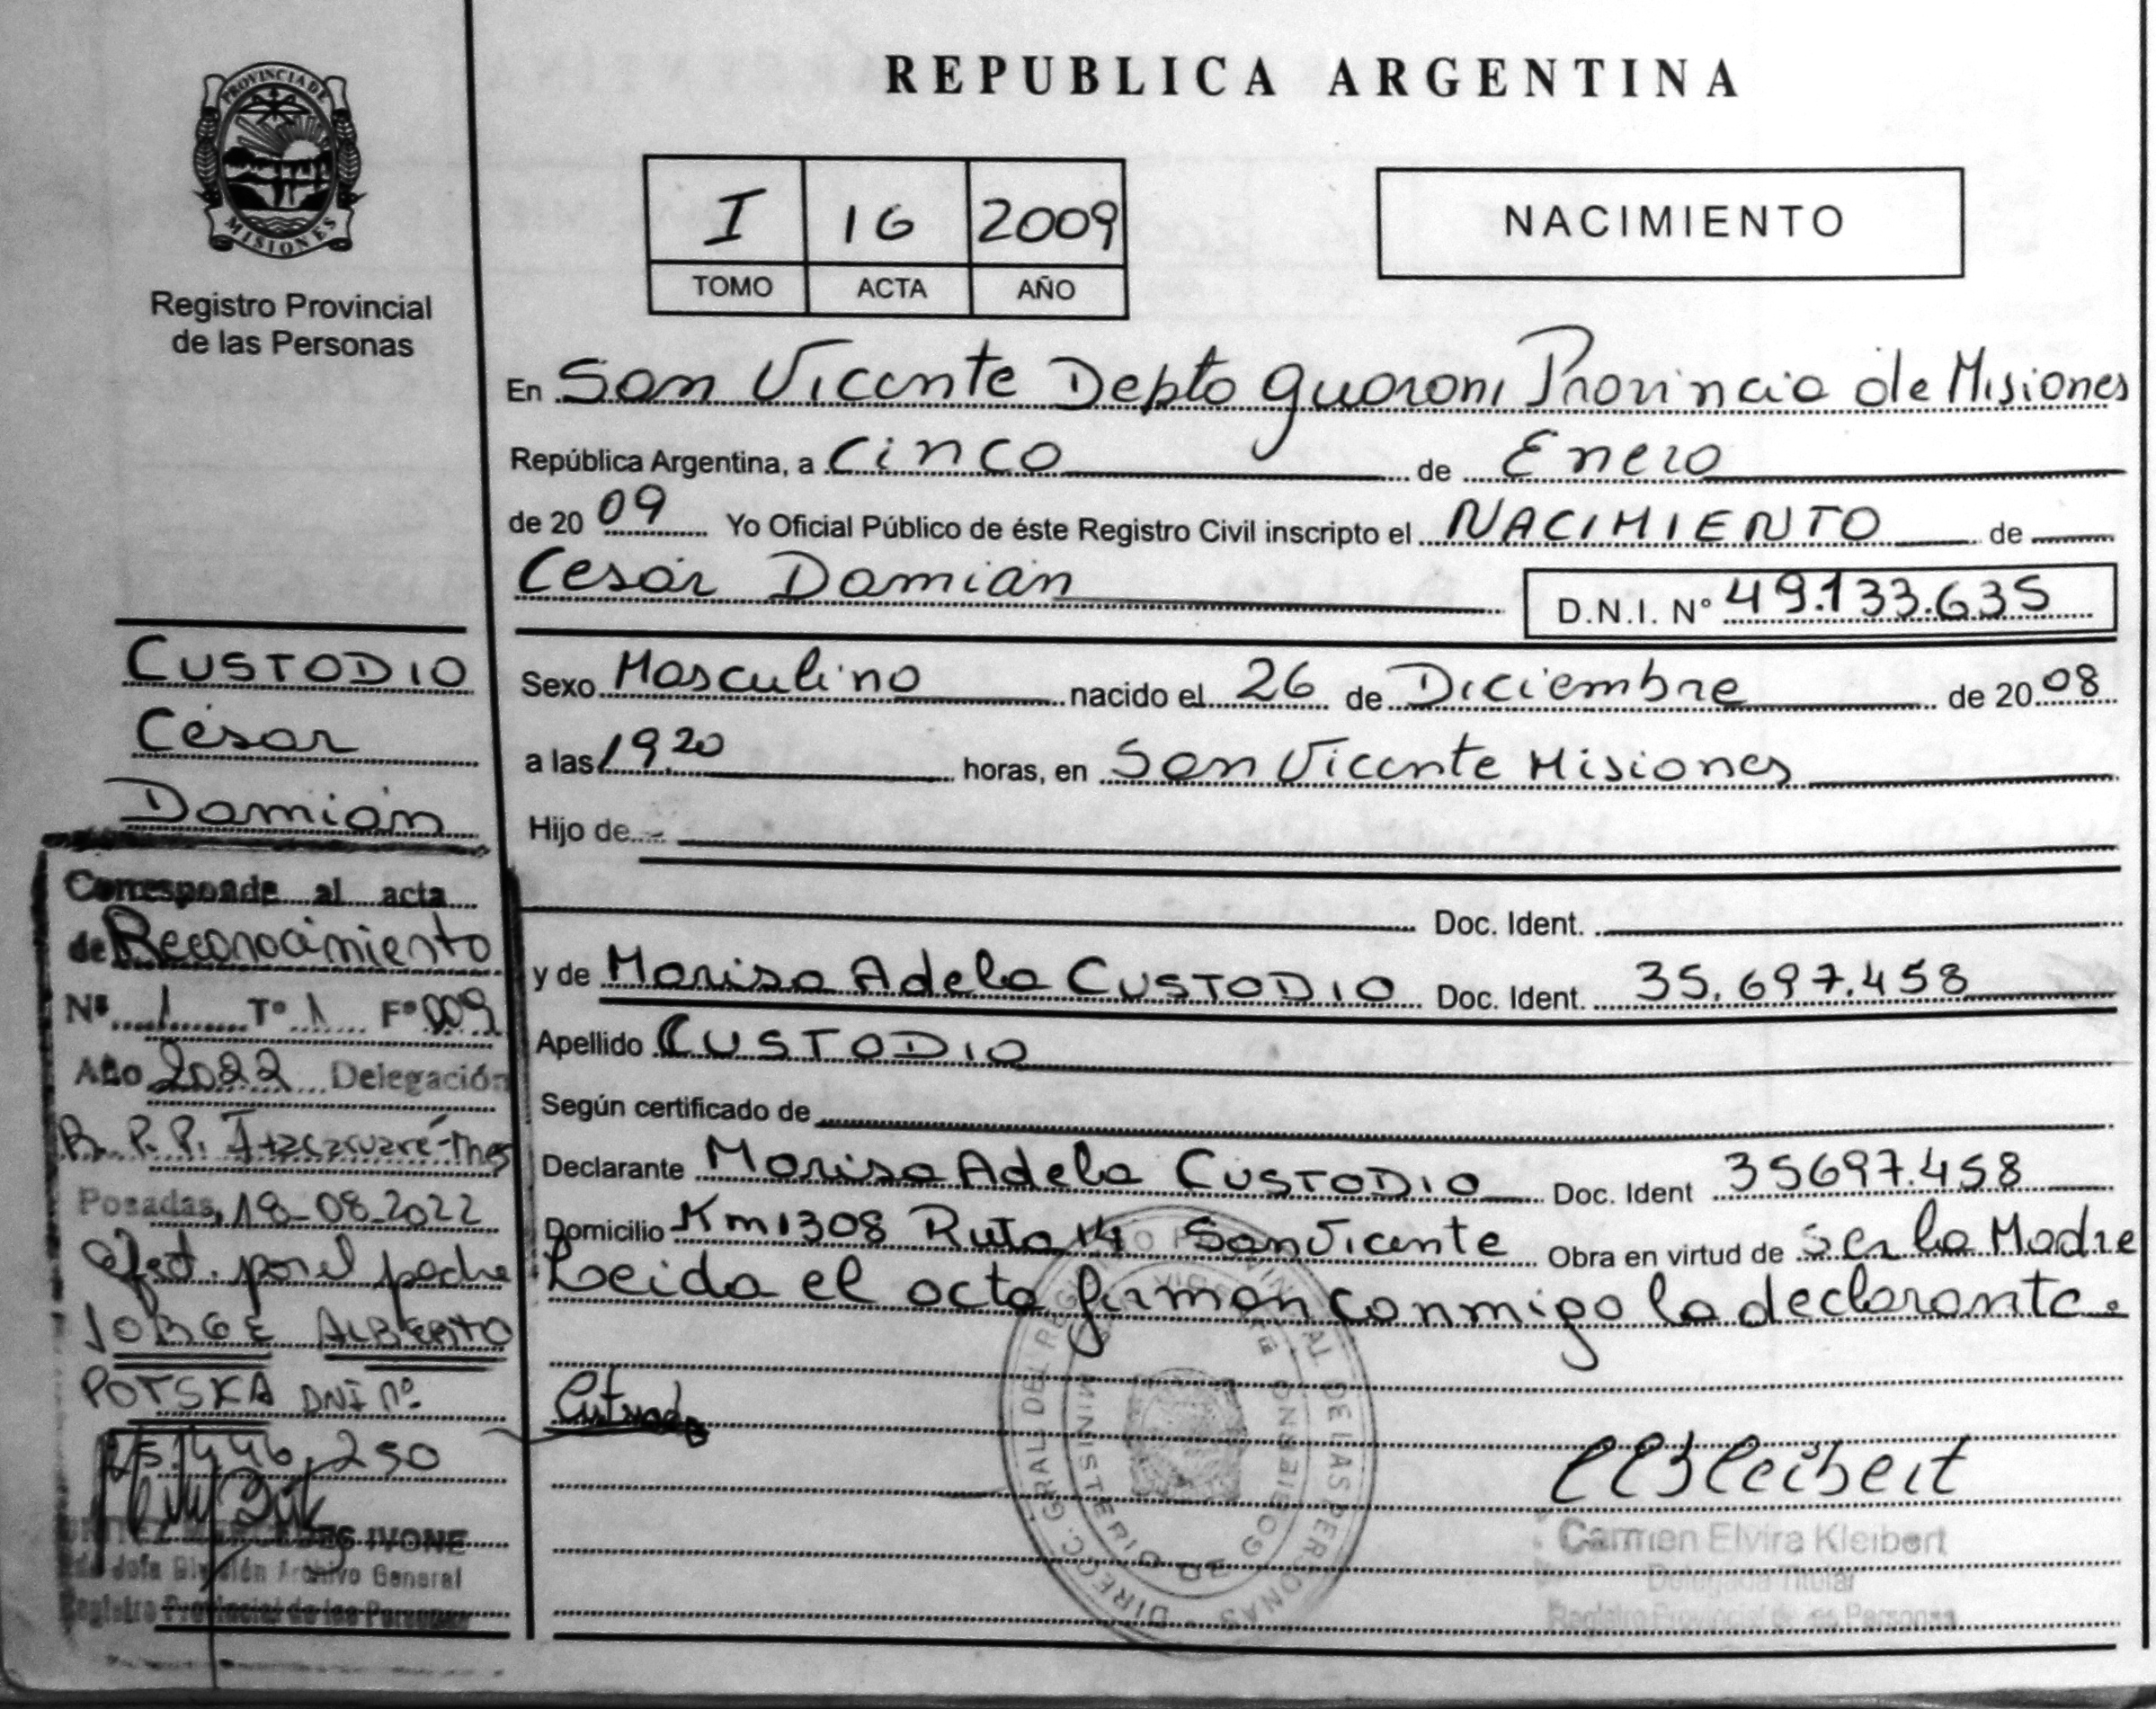 REPUBLICA ARGENTINA
PROVINCIA DE
MISIONES
Registro Provincial
de las Personas
I 16 2009
TOMO ACTA AÑO
NACIMIENTO
En San Vicente Depto Guaroni Provincia de Misiones
República Argentina, a Cinco de Enero
de 2009 Yo Oficial Público de éste Registro Civil inscripto el NACIMIENTO de
Cesár Damián
D.N.I. Nº 49.133.635
Sexo Masculino nacido el 26 de Diciembre de 2008
a las 19,20 horas, en San Vicente Misiones
Hijo de
Doc. Ident.
y de Marisa Adela CUSTODIO Doc. Ident. 35.697.458
Apellido CUSTODIO
Según certificado de
Declarante Marisa Adela CUSTODIO Doc. Ident 35697.458
Domicilio Km1308 Ruta 14 San Vicente Obra en virtud de Ser la Madre
Leida el acta firman conmigo la declarante.
CUSTODIO
César
Damián
Corresponde al acta
de Reconocimiento
Nº 1 Tº 1 Fº 009
Año 2022 Delegación
R. P. P. Itacaruaré-Mnes
Posadas, 18-08-2022
efect. por el padre
JORGE ALBERTO
POTSKA DNI Nº
.446.250
IVONE
División Archivo General
Registro Provincial de las Personas
DIREC. GRAL DEL REGISTRO PROVINCIAL DE LAS PERSONAS
MINISTERIO DE GOBIERNO
SAN VICENTE
Carmen Elvira Kleibert
Delegada Titular
Registro Provincial de las Personas